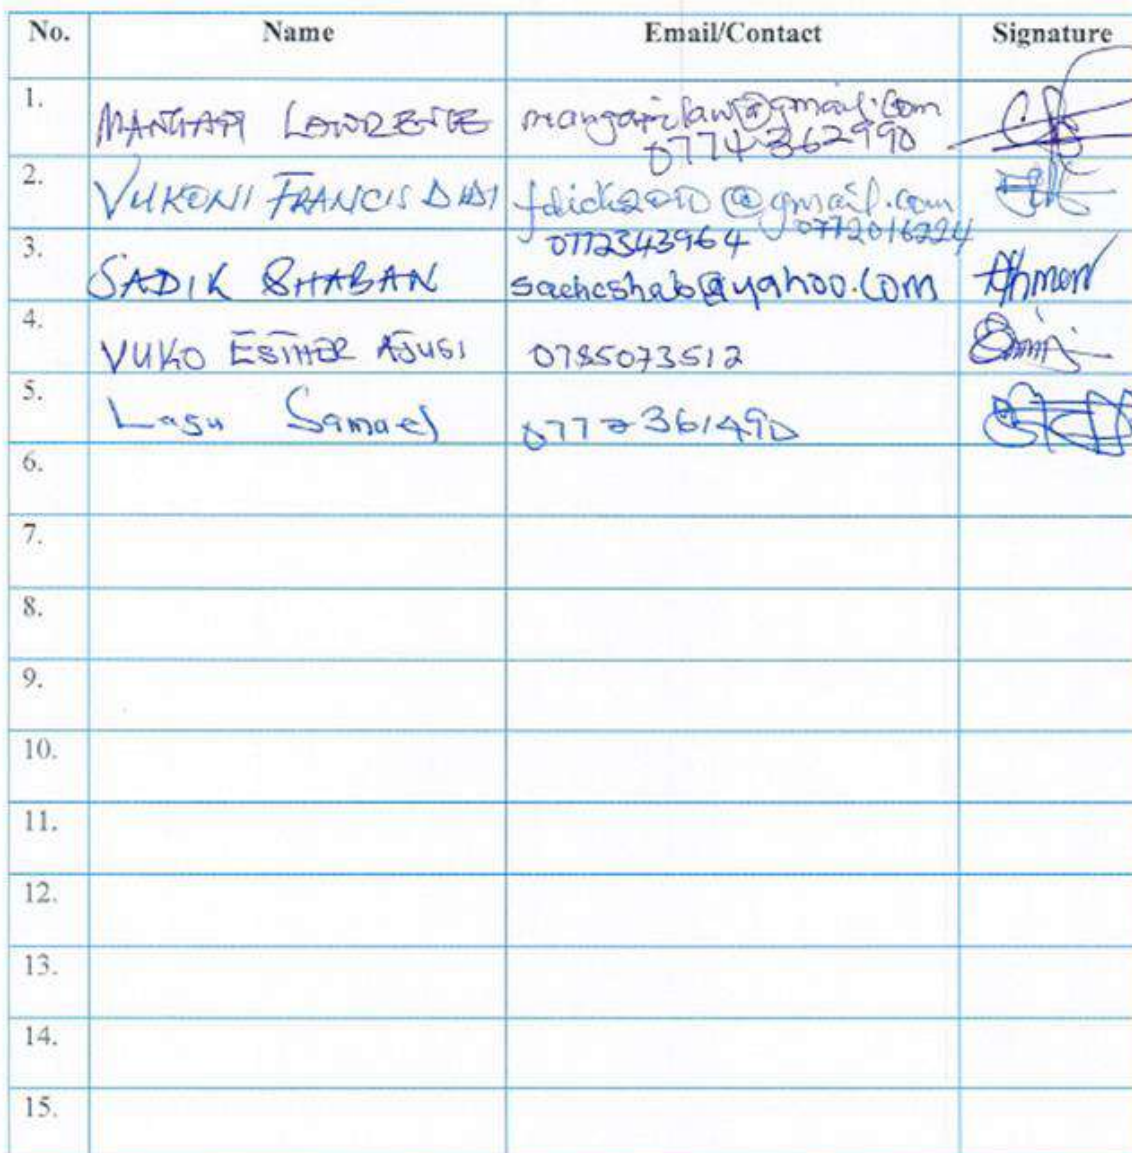 No. Name Email/Contact Signature
1. LAWRENCE @gmail.com
0774362990
2. VUKONI FRANCIS fdick2010@gmail.com
0772016224
0772343964
3. SADIK SHABAN @yahoo.com
4. VUKO ESTHER AJUSI 0785073512
5. Lasu Samuel 0772361490
6.
7.
8.
9.
10.
11.
12.
13.
14.
15.